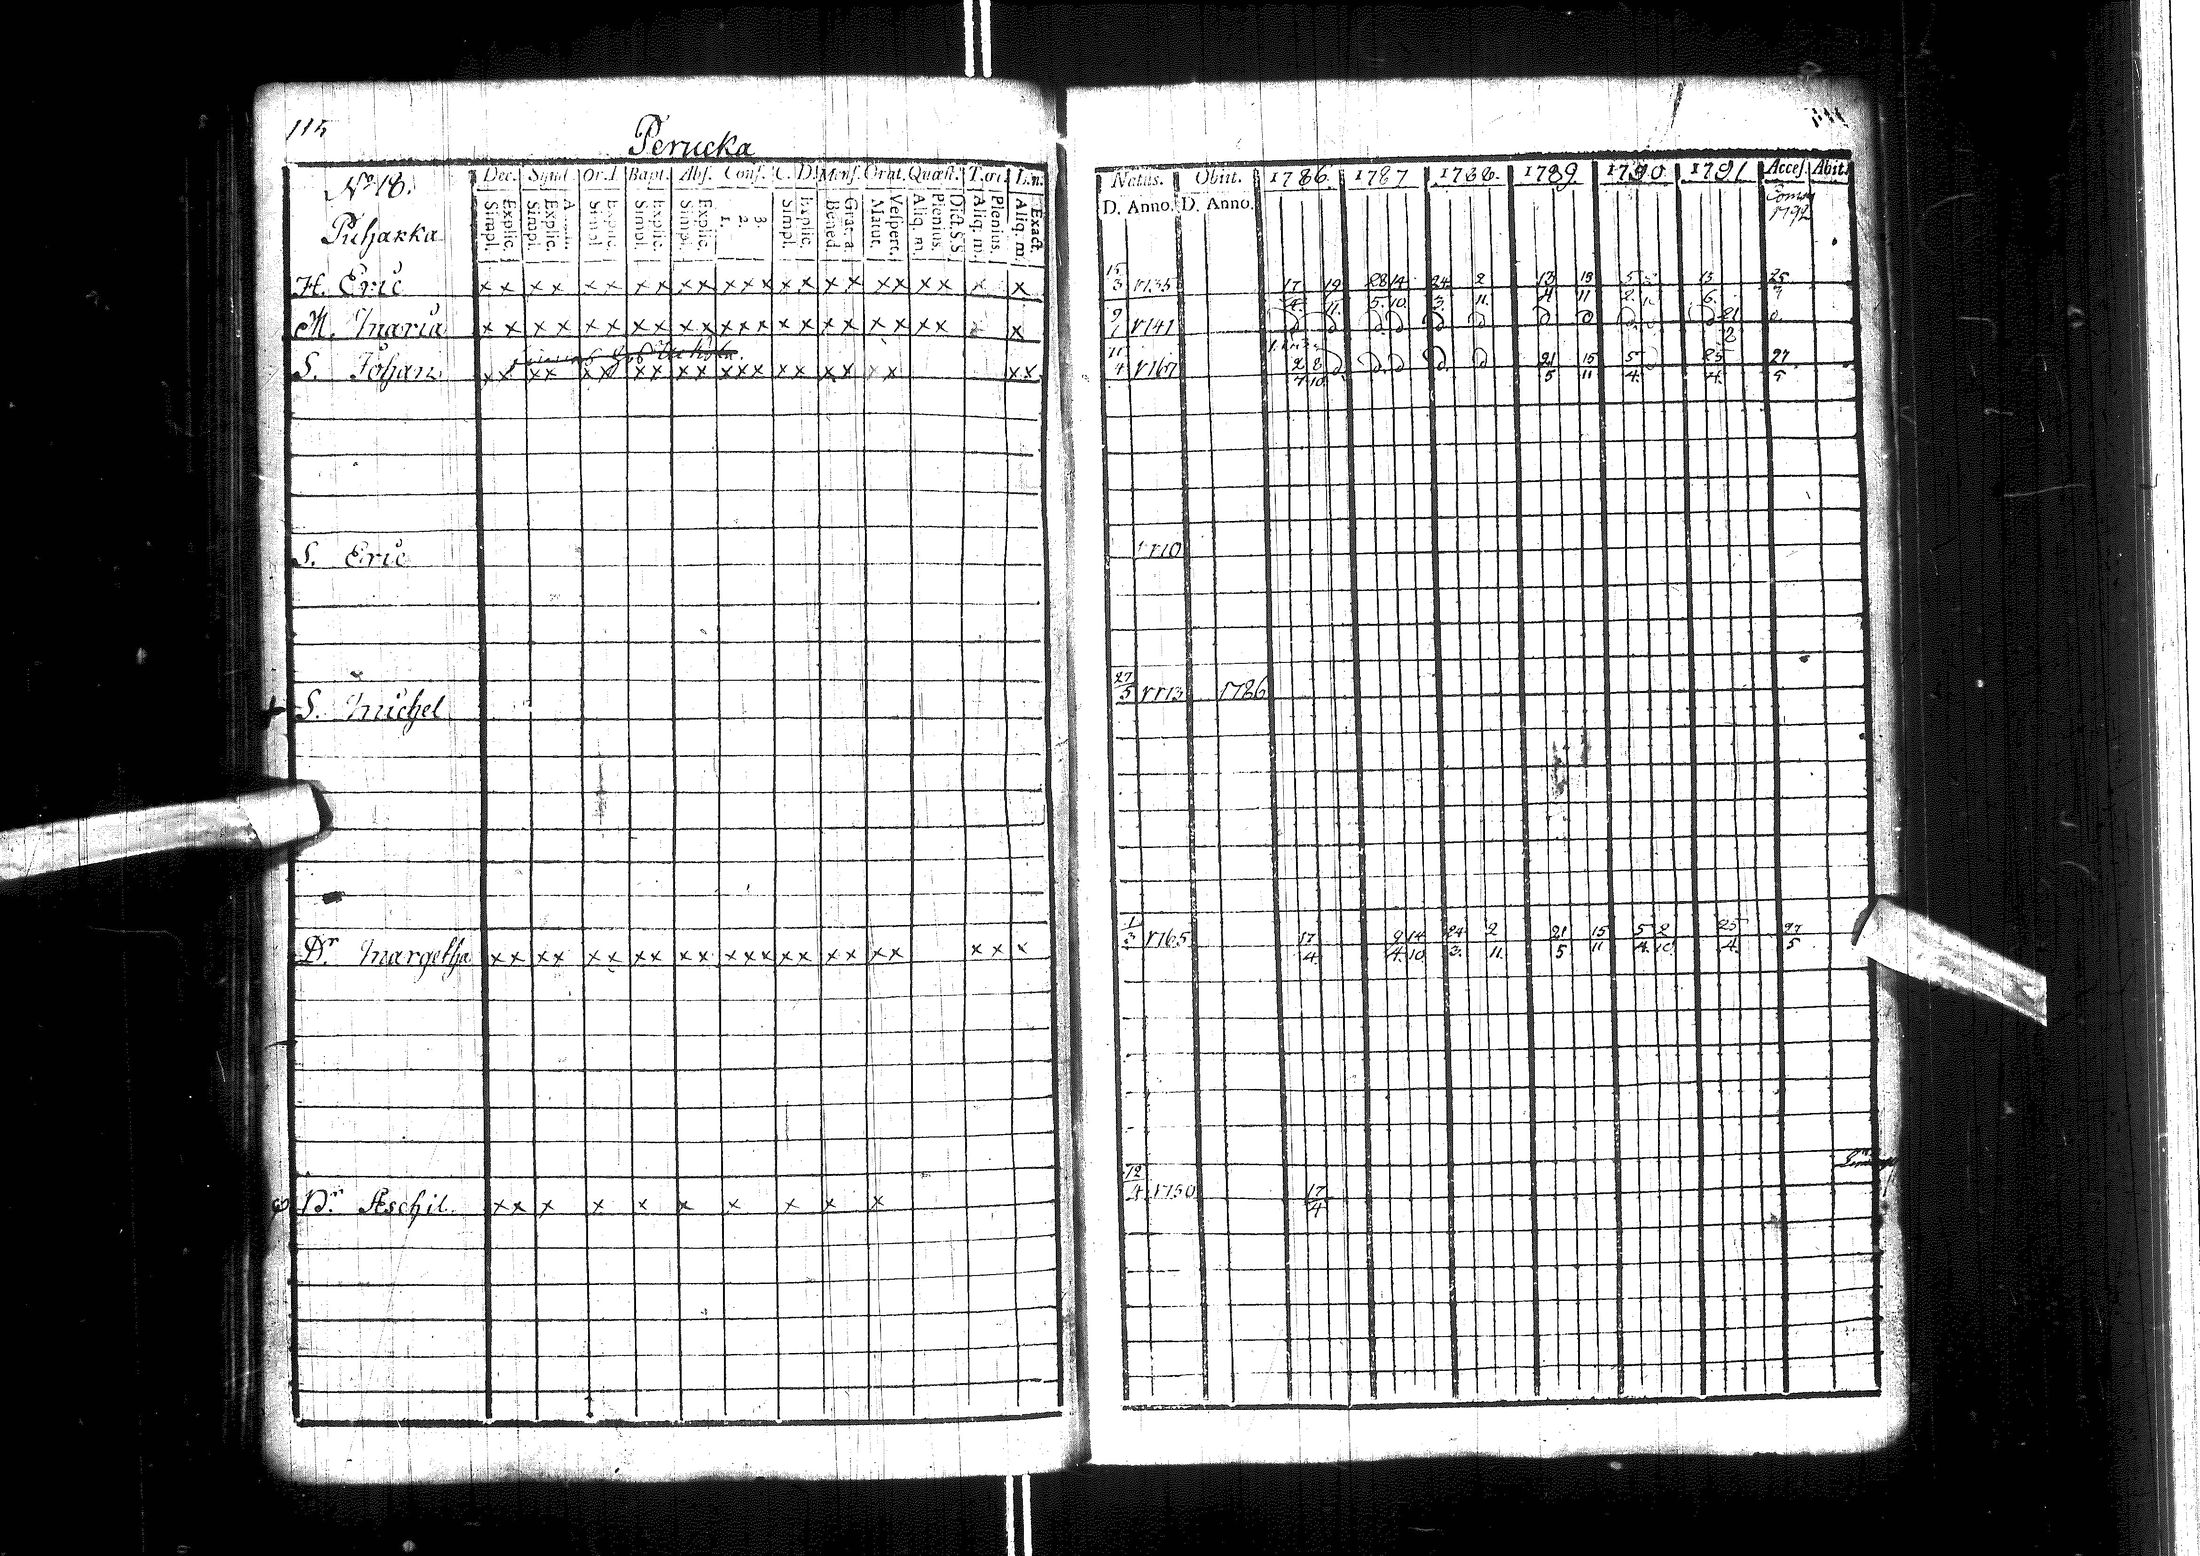 115
Perucka
No 18.
Puharka
Dec. Symb. Or. D. Bapt. Abs. Conf. C. D. Mens. Orat. Quæst. T. œc. L. n.
Simpl. Explic. Simpl. Explic. Simpl. Explic. Simpl. Explic. Simpl. Explic. 1. 2. 3. Simpl. Explic. Bened. Grat. a. Matut. Vespert. Aliq. m. Plenius. Dict. S S Aliq. m. Plenius. Aliq. m. Exact.
Natus. Obiit. 1786. 1787 1788. 1789 1790 1791 Acces. Abit.
D. Anno. D. Anno.
1792
H. Eric x x x x x x x x x x x x x x x x x x x x x x x 15/3 1735 17/4 19/11. 28/5 14/10 24/3 2/11. 13/4 13/11 5 13/6 25
M. Maria x x x x x x x x x x x x x x x x x x x x x x 9/1 1741
S. Johan x x x x x x x x x x x x x x x x x x x x x 1767 2/4 8/10 21/5 15/11 5/4. 25/4. 27/5
S. Eric
S. Michel 27/5 1773 1786
Dr Margetha x x x x x x x x x x x x x x x x x x x x x x 1/3 1765 17/4 9/4 14/10 24/3. 2/11. 21/5 15/11 5/4 2/10 25/4 27/5
Dr. Æschil. x x x x x x x x x x 12/4 1750 17/4